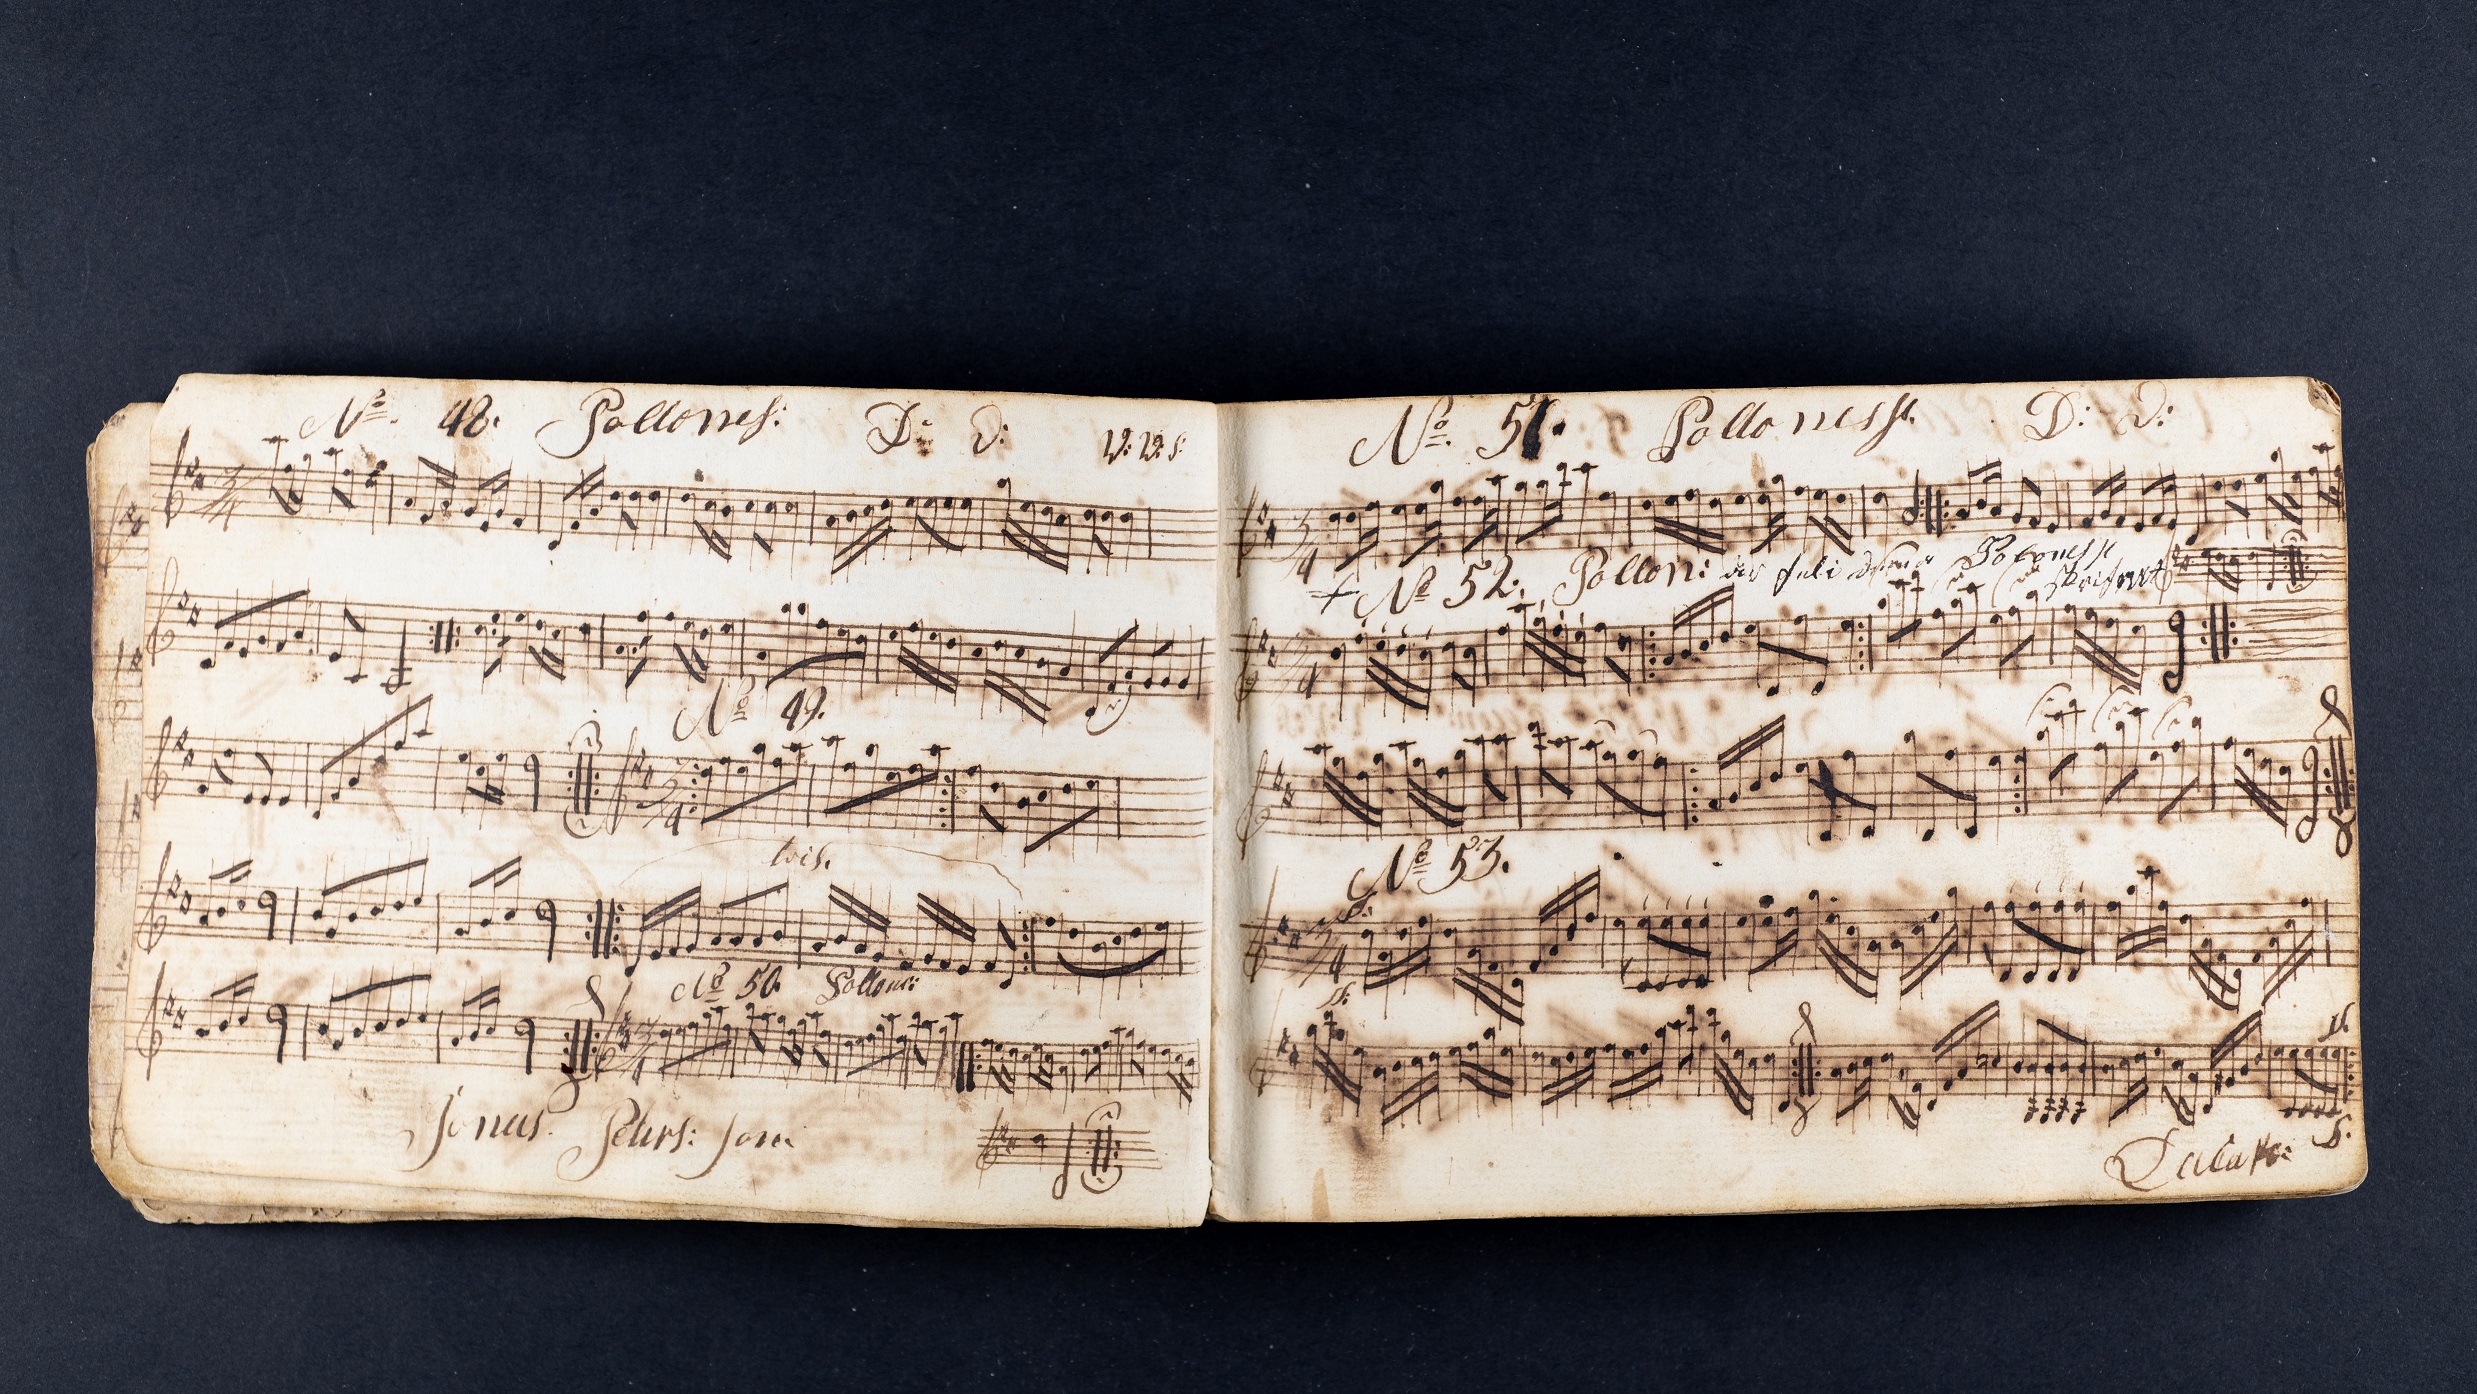 No. 48. Pollones: D: D: W: W: S:
No 49.
twis.
No 50. Pollone:
Jonas Peters: son:
No. 51. Polloness. D: D:
No 52. Pollon: Polonesse
No 53.
S:
S:
S:
S: